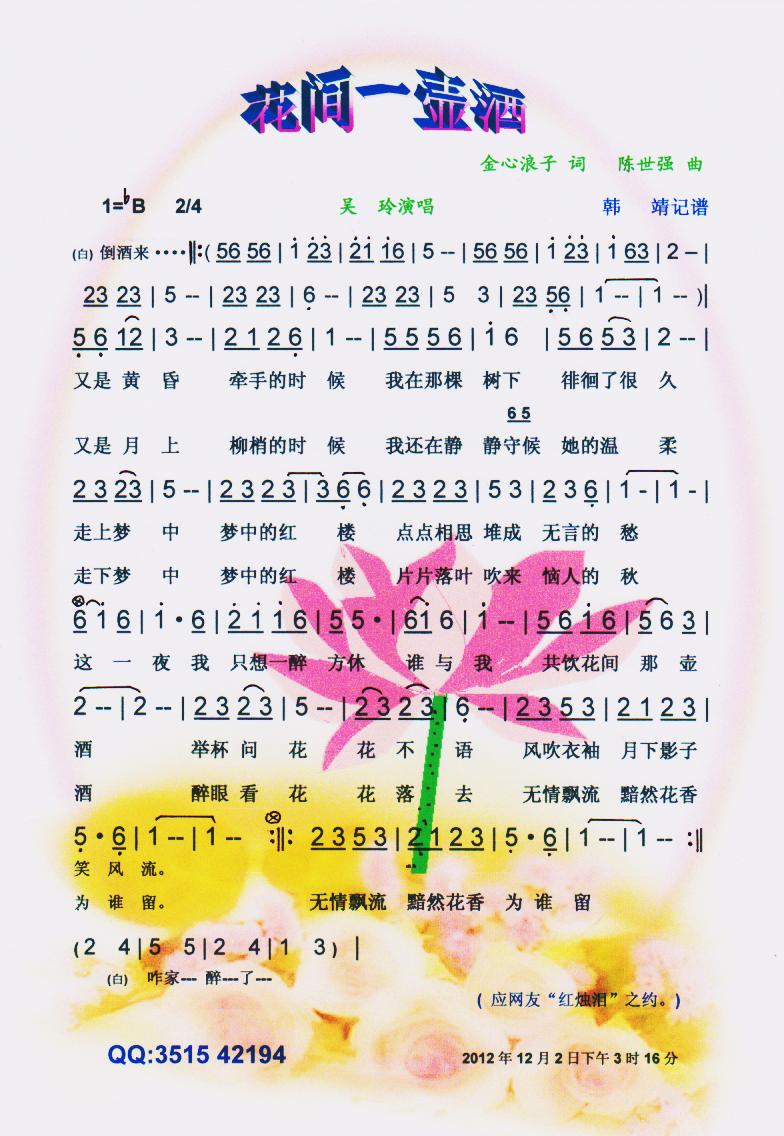 花间一壶酒
金心浪子 词 陈世强 曲
1=♭B 2/4 吴 玲演唱 韩 靖记谱
(白) 倒酒来 ····‖:( 56 56 | 1 23 | 21 16 | 5 -- | 56 56 | 1 23 | 1 63 | 2 – |
23 23 | 5 -- | 23 23 | 6 -- | 23 23 | 5 3 | 23 56 | 1 -- | 1 -- )|
5 6 12 | 3 -- | 2 1 2 6 | 1 -- | 5 5 5 6 | 1 6 | 5 6 5 3 | 2 -- |
又是 黄 昏 牵手的时 候 我在那棵 树下 徘徊了很 久
6 5
又是 月 上 柳梢的时 候 我还在静 静守候 她的温 柔
2 3 23 | 5 -- | 2 3 2 3 | 3 6 6 | 2 3 2 3 | 5 3 | 2 3 6 | 1 - | 1 - |
走上梦 中 梦中的红 楼 点点相思 堆成 无言的 愁
走下梦 中 梦中的红 楼 片片落叶 吹来 恼人的 秋
6 1 6 | 1 · 6 | 2 1 1 6 | 5 5 · | 61 6 | 1 -- | 5 6 1 6 | 5 6 3 |
这 一 夜 我 只想一醉 方休 谁 与 我 共饮花间 那 壶
2 -- | 2 -- | 2 3 2 3 | 5 -- | 2 3 2 3 | 6 -- | 2 3 5 3 | 2 1 2 3 |
酒 举杯 问 花 花 不 语 风吹衣袖 月下影子
酒 醉眼 看 花 花 落 去 无情飘流 黯然花香
5 · 6 | 1 -- | 1 -- :‖: 2 3 5 3 | 2 1 2 3 | 5 · 6 | 1 -- | 1 -- :‖
笑 风 流。
为 谁 留。 无情飘流 黯然花香 为 谁 留
( 2 4 | 5 5 | 2 4 | 1 3 ) |
(白) 咋家--- 醉---了---
( 应网友“红烛泪”之约。)
QQ:3515 42194 2012 年 12 月 2 日下午 3 时 16 分